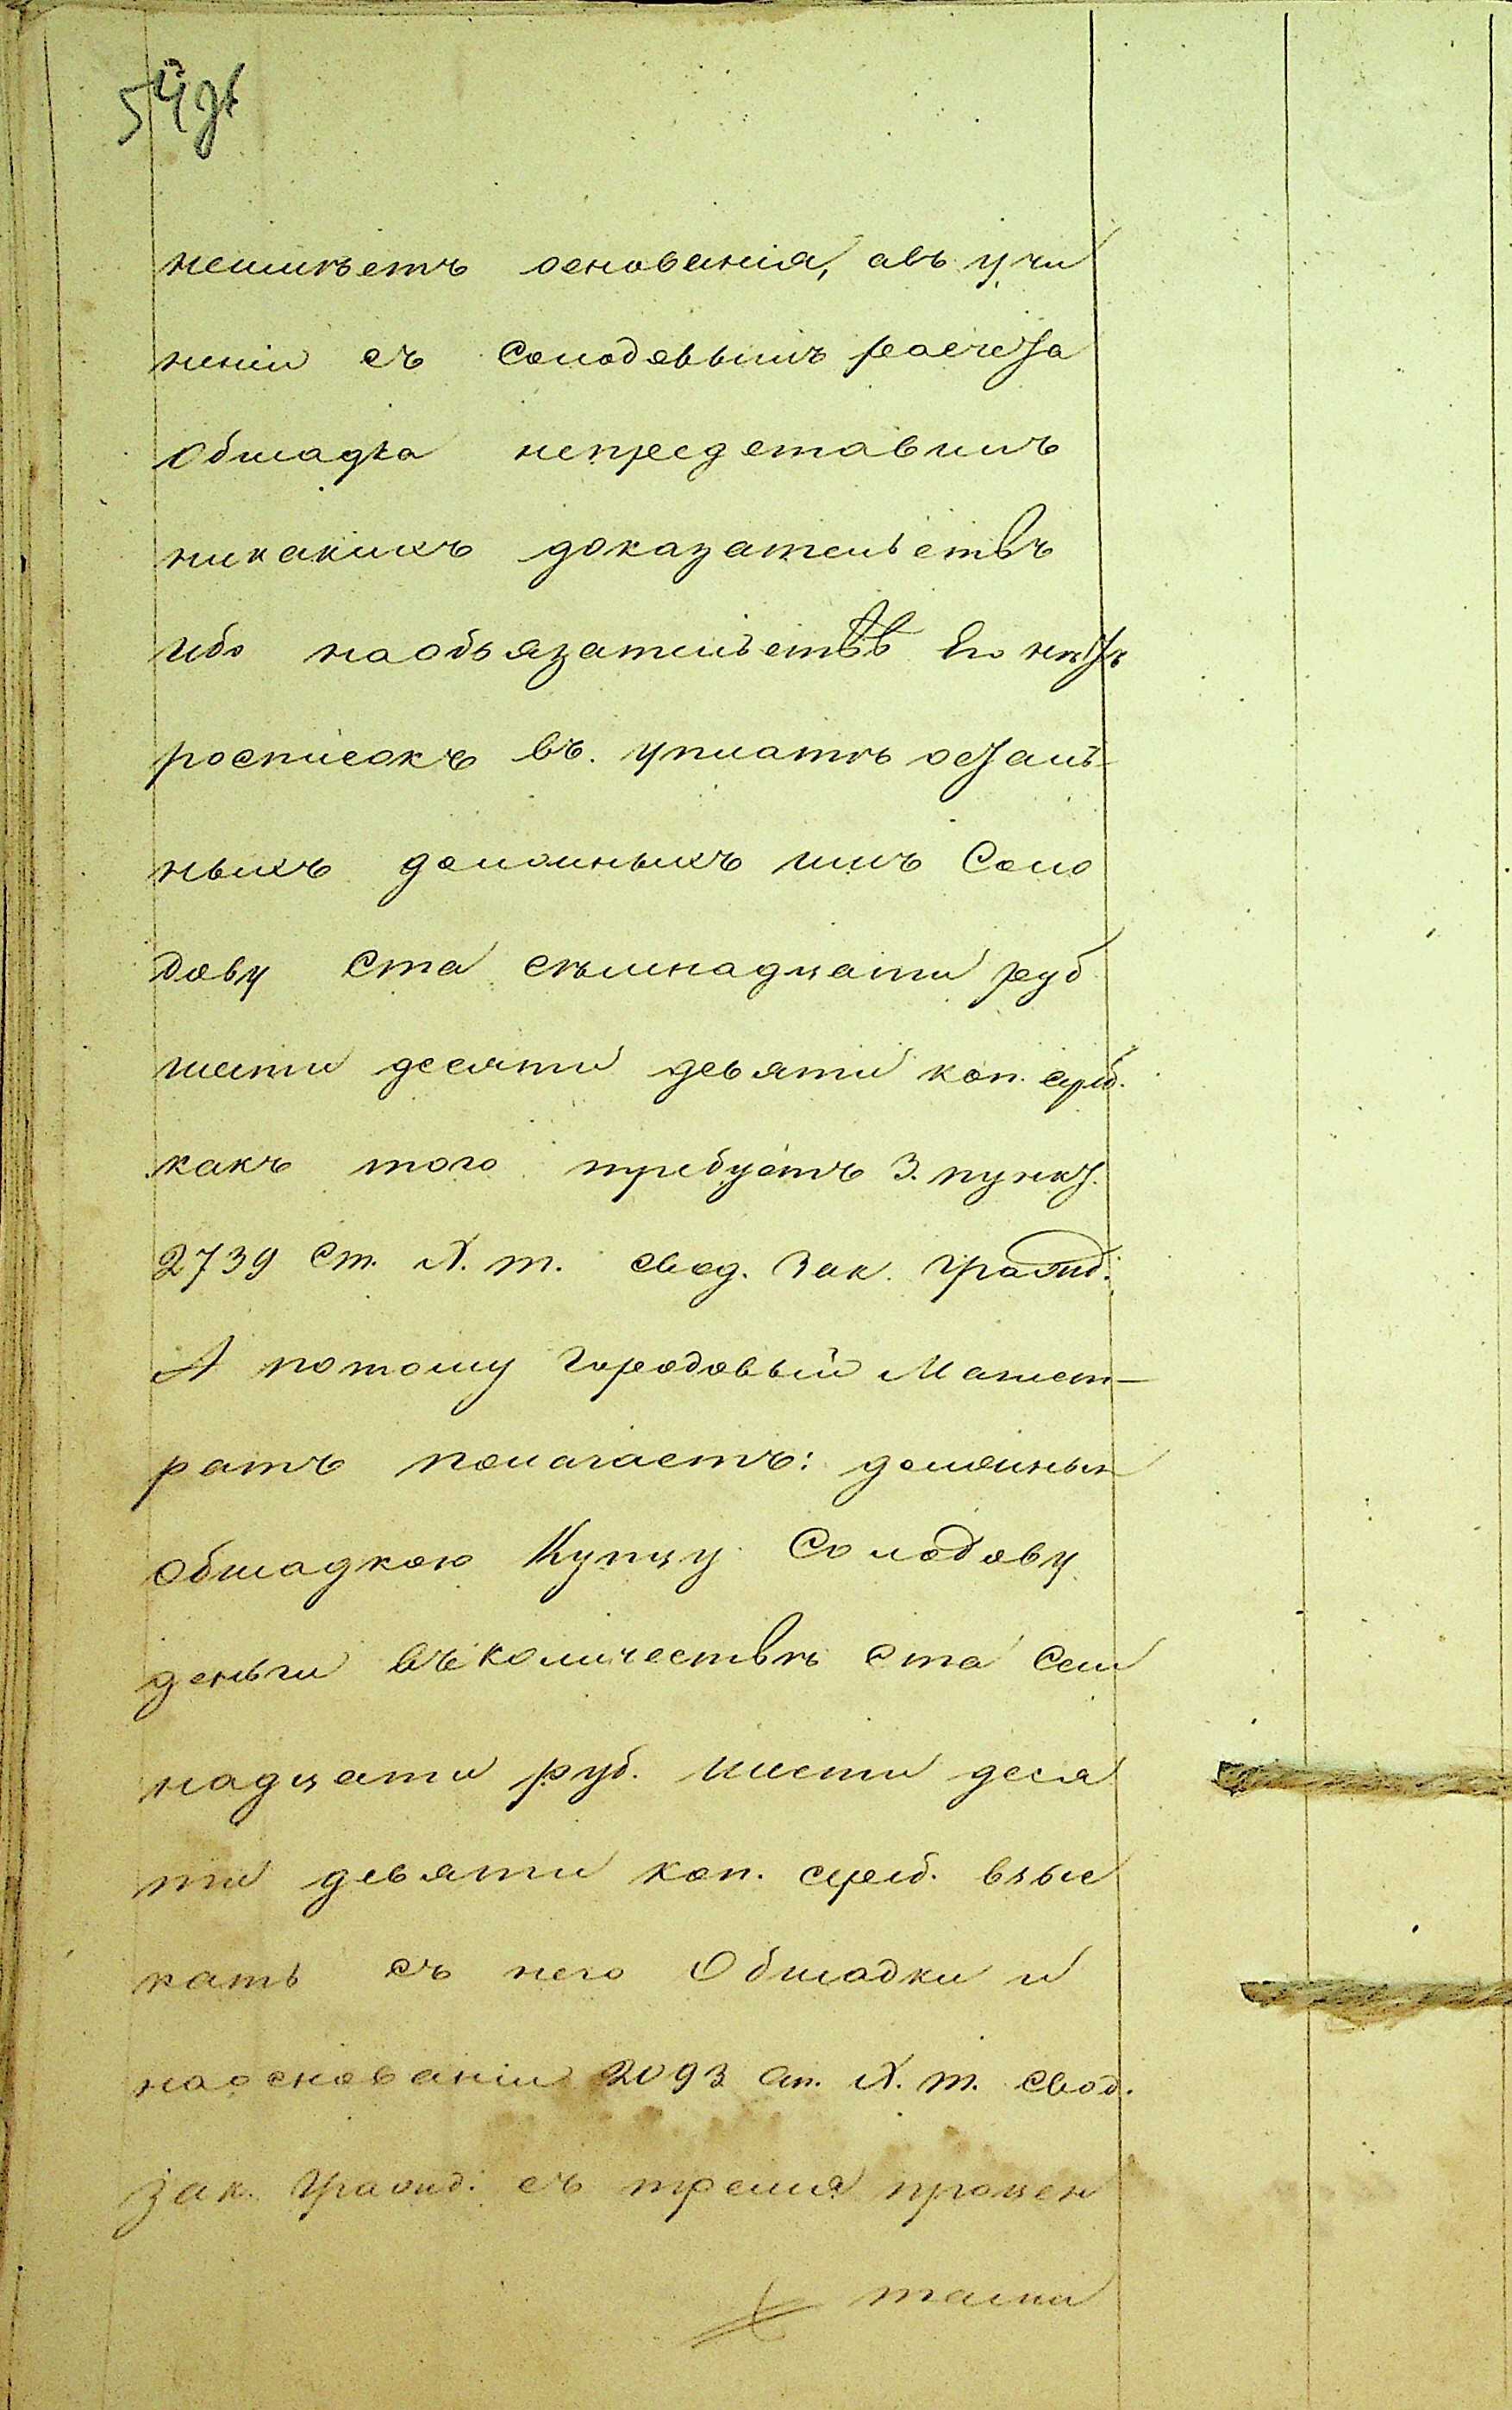 54
неимѣетъ основанія, авъ учи
неніи съ Солодовымъ расчета
Обмадка непредставилъ
никакихъ доказательствъ
ибо наобязательствѣ Его нѣтъ
росписокъ въ уплатѣ осталь-
ныхъ должныхъ имъ Соло
дову ста семнадцати руб
шести десяти девяти коп. сереб.
какъ того требуетъ 3. пункт.
2739 ст. X. т. свод. Зак. Гражд.
А потому Городовый Магист-
ратъ полагаетъ: должныя
Обмадкою Купцу Солодову
деньги въ количествѣ ста сем
надцати руб. шести деся
ти девяти коп. сереб. взыс
кать съ него Обмадки и
наоснованіи 2093 ст. X. т. свод.
зак. Гражд. съ тремя процен
тами